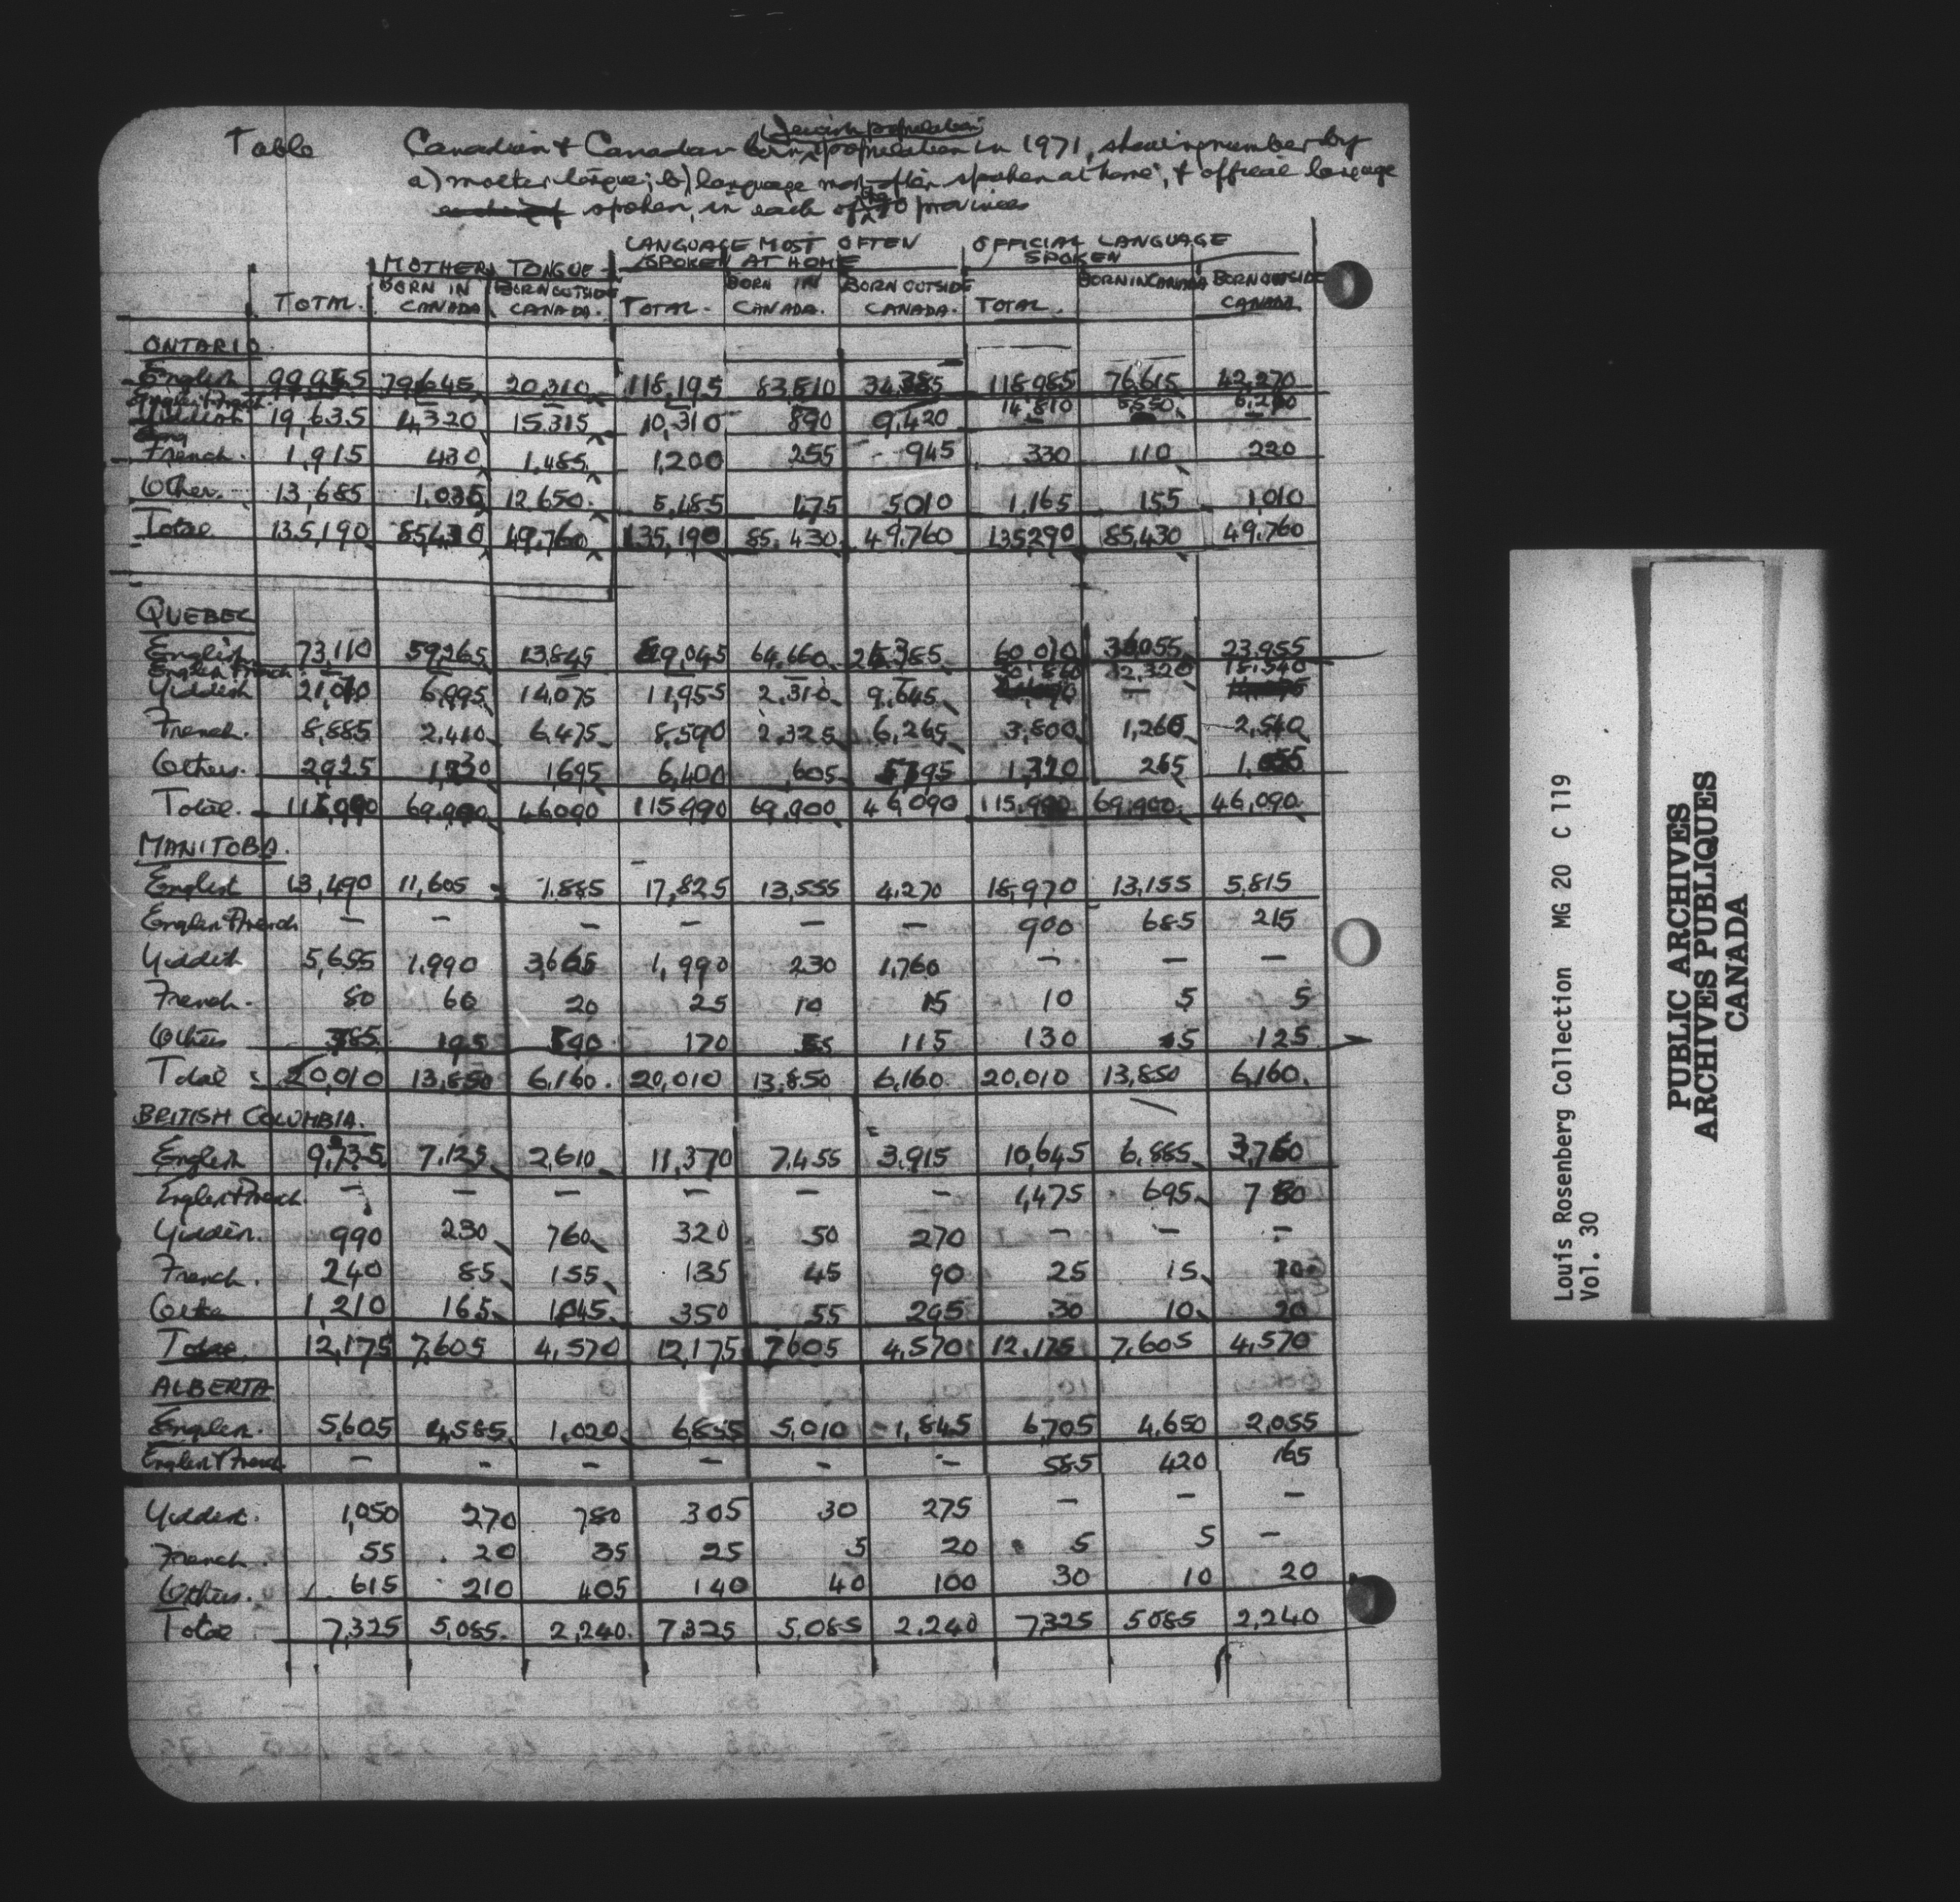 Table Canadian & Canadian born (Jewish population) population in 1971, showing number by
a) mother tongue; b) language most often spoken at home; & official language
spoken, in each of the 10 provinces
MOTHER TONGUE LANGUAGE MOST OFTEN SPOKEN AT HOME OFFICIAL LANGUAGE SPOKEN
TOTAL. BORN IN CANADA BORN OUTSIDE CANADA. TOTAL. BORN IN CANADA. BORN OUTSIDE CANADA. TOTAL. BORN IN CANADA BORN OUTSIDE CANADA
ONTARIO.
English 99,955 79,645 20,310 118,195 83,810 34,385 118,985 76,615 42,370
English & French 14,810
Yiddish 19,635 4,320 15,315 10,310 890 9,420
French. 1,915 430 1,485 1,200 255 945 330 110 220
Other. 13,685 1,035 12,650 5,485 475 5010 1,165 155 1,010
Total 135,190 85,430 49,760 135,190 85,430 49,760 135290 85,430 49,760
QUEBEC
English 73,110 59,265 13,845 64,660 60,010 36055 23,955
English French
Yiddish 21,070 6,995 14,075 11,955 2,310 9,645
French. 8,885 2,410 6,475 8,590 2,325 6,265 3,800 1,260 2,540
Others. 2,925 1695 6,400 605 5795 1,320 265 1,055
Total. 69,900 46090 115,990 69,900 46090 115,990 69,900 46,090
MANITOBA.
English 13,490 11,605 1,885 17,825 13,555 4,270 18,970 13,155 5,815
English & French — — — — — — 900 685 215
Yiddish 5,655 1,990 3,665 1,990 230 1,760 — — —
French. 80 60 20 25 10 15 10 5 5
Others 785 195 590 170 55 115 130 5 125
Total 20,010 13,850 6,160. 20,010 13,850 6,160 20,010 13,850 6,160.
BRITISH COLUMBIA.
English 9,735 7,125 2,610 11,370 7,455 3,915 10,645 6,885 3,760
English & French — — — — — — 1,475 695 780
Yiddish. 990 230 760 320 50 270 — — —
French. 240 85 155 135 45 90 25 15 10
Other 1,210 165 1045 350 55 295 30 10 20
Total 12,175 7,605 4,570 12,175 7605 4,570 12,175 7,605 4,570
ALBERTA
English. 5,605 4,585 1,020 6,855 5,010 1,845 6,705 4,650 2,055
English & French — — — — — — 585 420 165
Yiddish. 1,050 270 780 305 30 275 — — —
French. 55 20 35 25 5 20 5 5 —
Others. 615 210 405 140 40 100 30 10 20
Total 7,325 5,085. 2,240. 7325 5,085 2,240 7,325 5085 2,240
Louis Rosenberg Collection MG 20 C 119
Vol. 30
PUBLIC ARCHIVES
ARCHIVES PUBLIQUES
CANADA